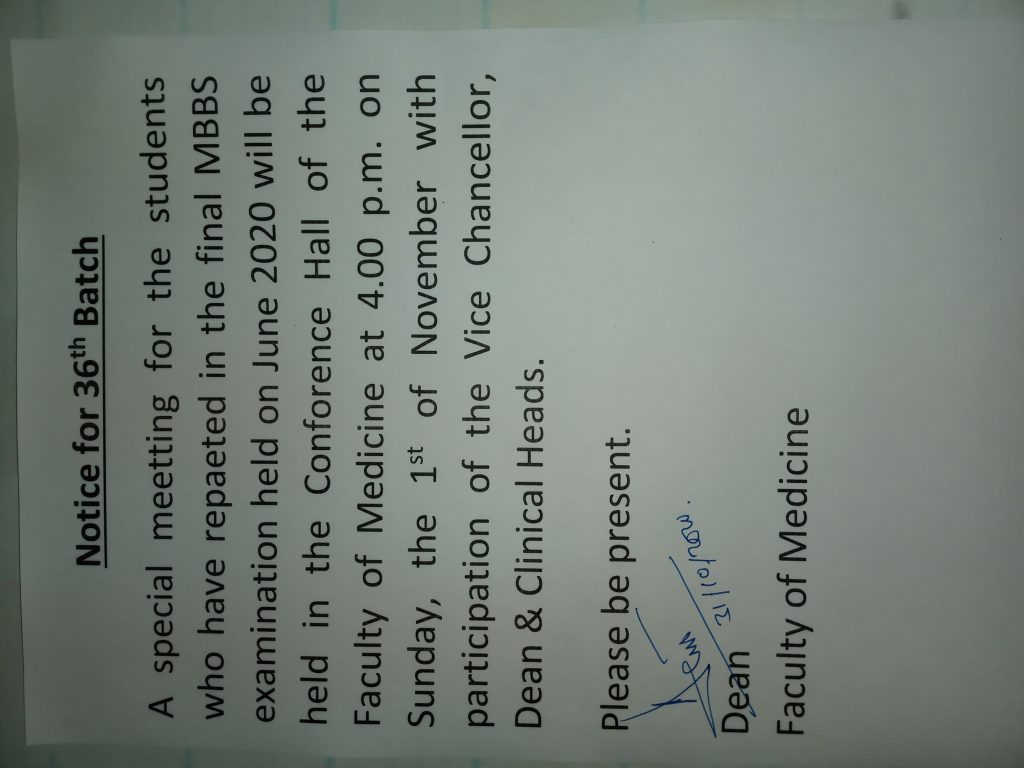 Notice for 36th Batch
A special meetting for the students
who have repaeted in the final MBBS
examination held on June 2020 will be
held in the Conference Hall of the
Faculty of Medicine at 4.00 p.m. on
Sunday, the 1st of November with
participation of the Vice Chancellor,
Dean & Clinical Heads.
Please be present.
Dean
Faculty of Medicine